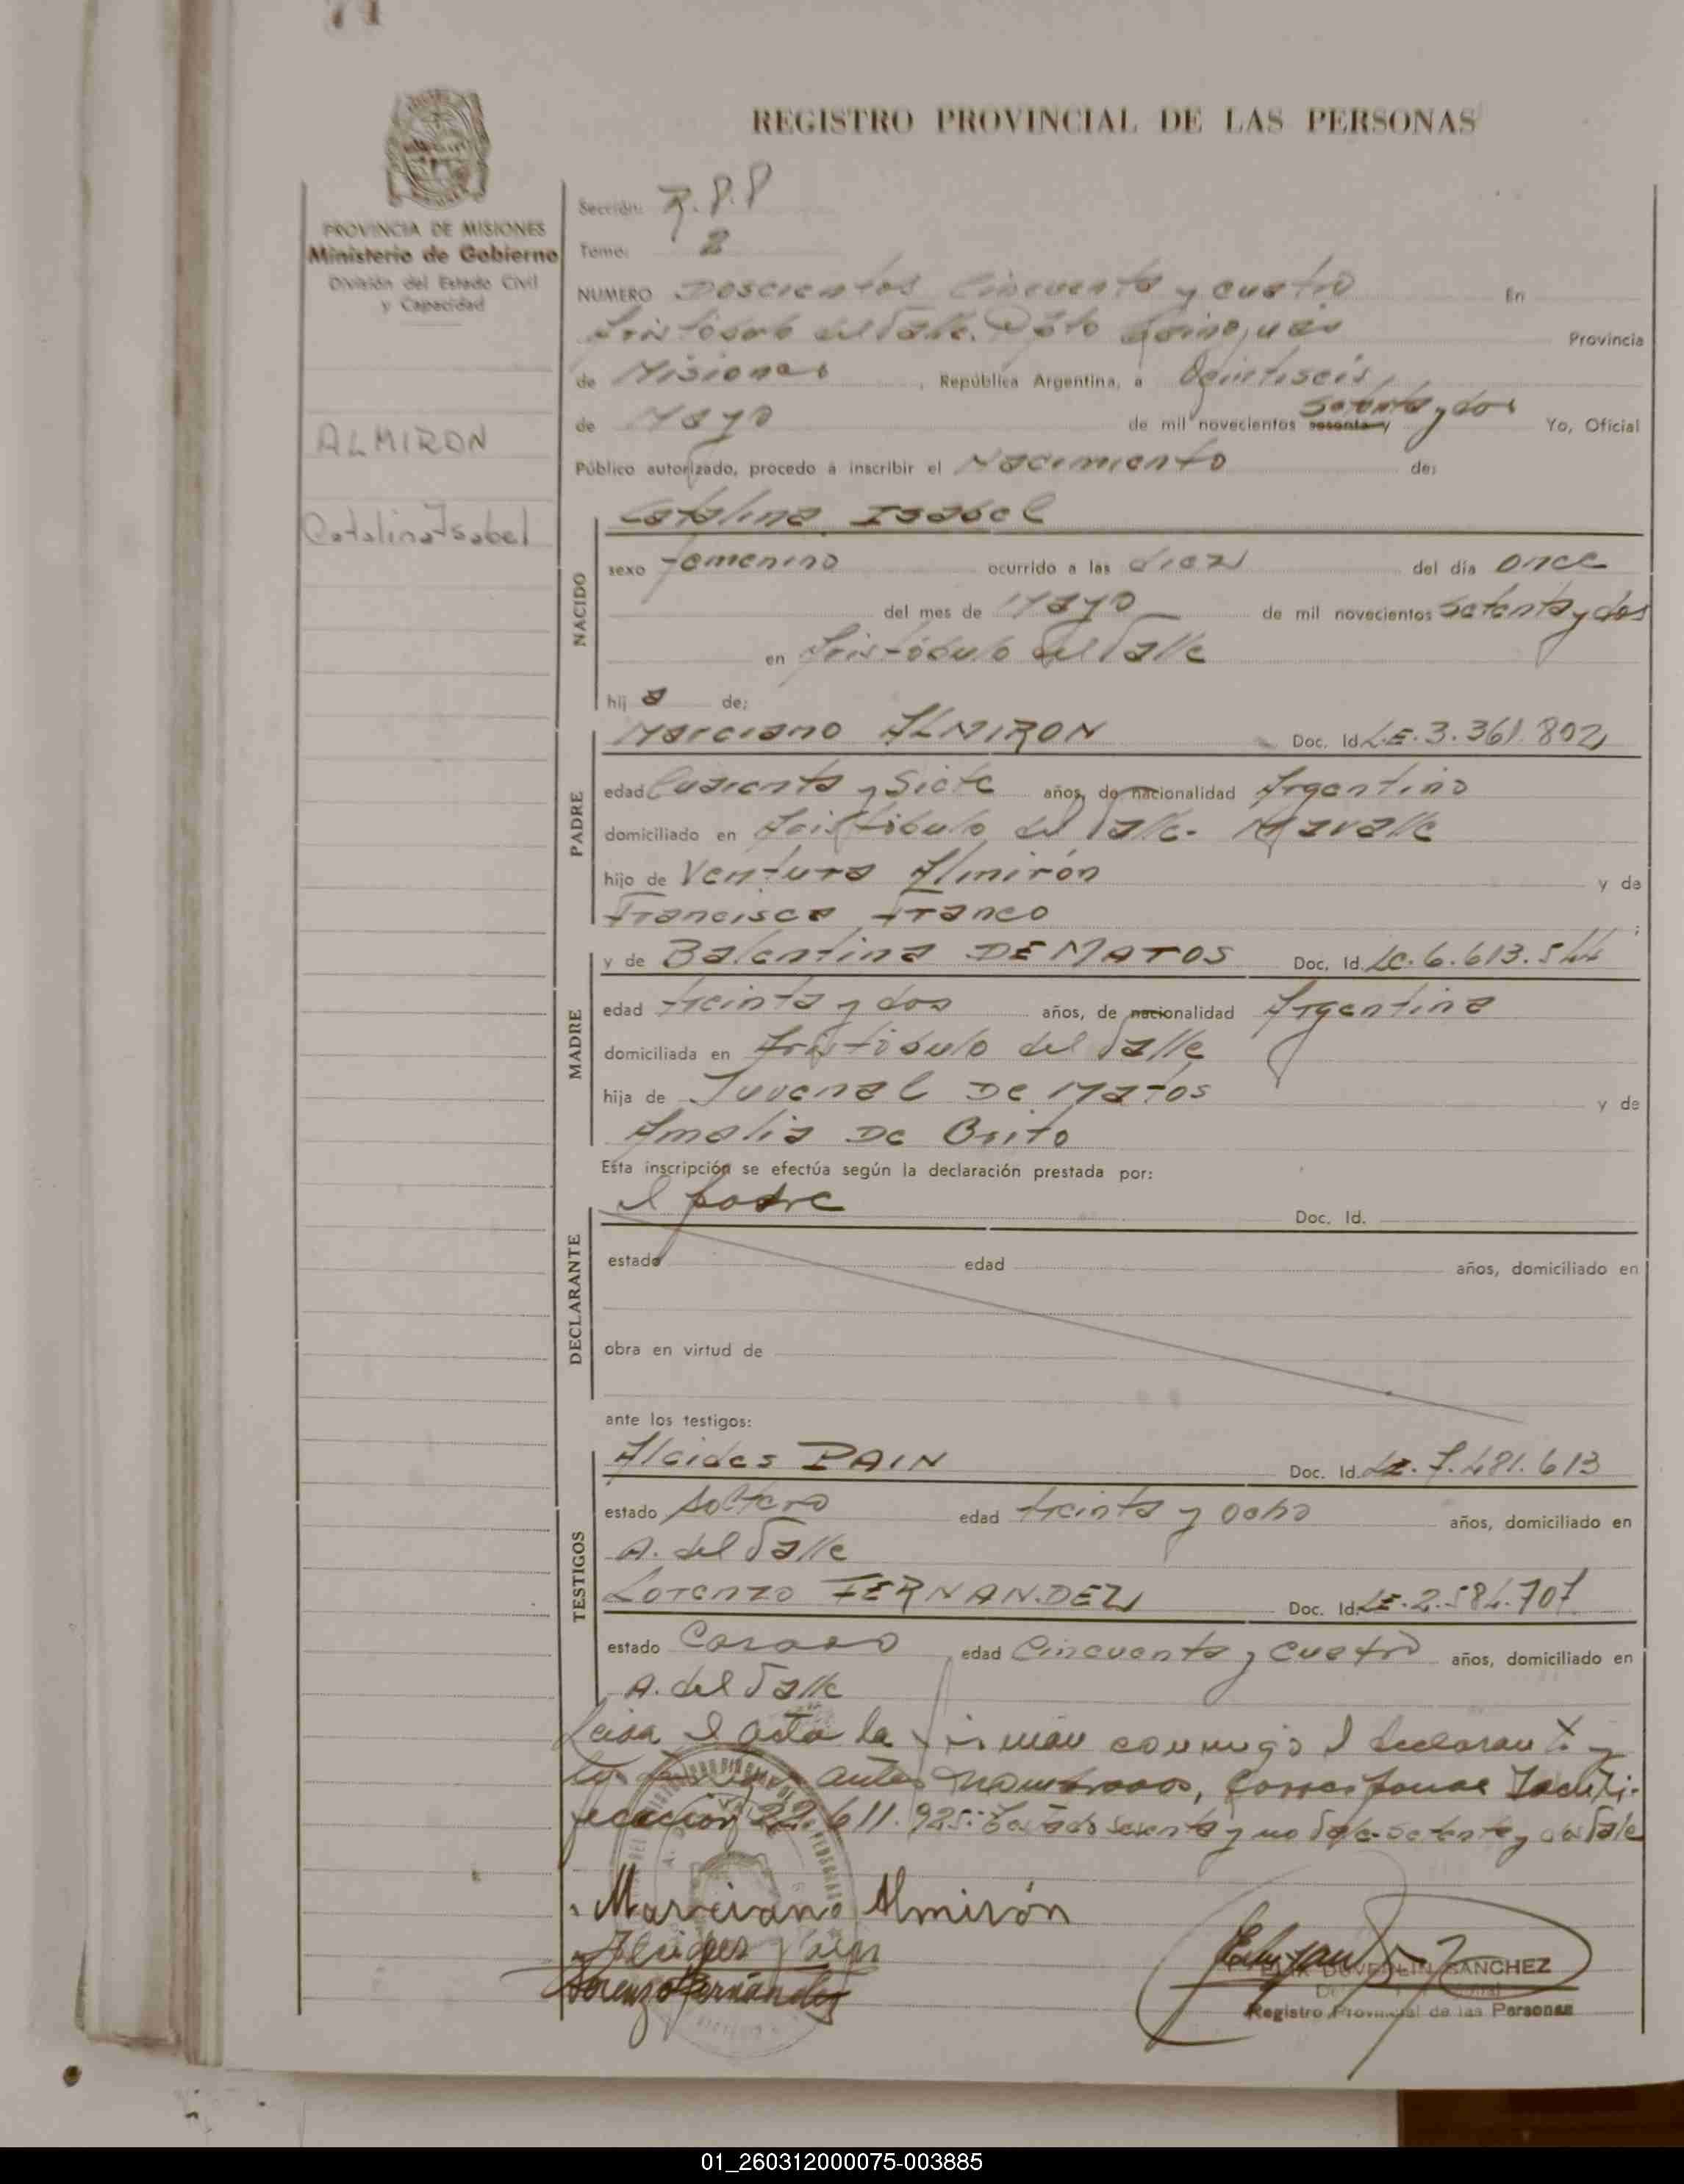 71
REGISTRO PROVINCIAL DE LAS PERSONAS
PROVINCIA DE MISIONES
Ministerio de Gobierno
División del Estado Civil
y Capacidad
ALMIRON
Catalina Isabel
Sección: R.P.P
Tomo: 2
NUMERO Doscientos Cincuenta y cuatro En
Aristóbulo del Valle. Dpto Cainguás Provincia
de Misiones, República Argentina, a Veintiseis
de Mayo de mil novecientos sesenta y Setenta y dos Yo, Oficial
Público autorizado, procedo a inscribir el Nacimiento de:
NACIDO
Catalina Isabel
sexo femenino ocurrido a las diez del día once
del mes de Mayo de mil novecientos Setenta y dos
en Aristóbulo del Valle
hij a de:
PADRE
Marciano ALMIRON Doc. Id. L.E. 3.361.802
edad Cuarenta y Siete años, de nacionalidad Argentino
domiciliado en Aristóbulo del Valle.
hijo de Ventura Almirón y de
Francisca Franco ;
MADRE
y de Balentina DE MATOS Doc. Id. LC. 6.613.544
edad treinta y dos años, de nacionalidad Argentina
domiciliada en Aristóbulo del Valle
hija de Juvenal De Matos y de
Amalia De Brito
Esta inscripción se efectúa según la declaración prestada por:
DECLARANTE
el padre Doc. Id.
estado edad años, domiciliado en
obra en virtud de
ante los testigos:
TESTIGOS
Alcides PAIN Doc. Id. LE. 7.481.613
estado Soltero edad treinta y ocho años, domiciliado en
A. del Valle
Lorenzo FERNANDEZ Doc. Id. LE. 2.584.707
estado Casado edad Cincuenta y Cuatro años, domiciliado en
A. del Valle
Leida el acta la firman conmigo el declarante y
los testigos antes nombrados, corresponde Identi-
ficación 22.611.925: Borrado sesenta y no Vale. Setenta y dos Vale
Marciano Almirón
Alcides Pain
Lorenzo Fernández
SANCHEZ
Registro Provincial de las Personas
01_260312000075-003885